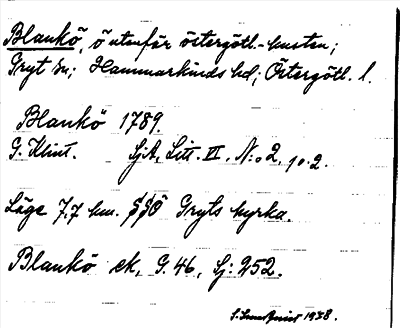 Blankö, ö utenför östergötl.-kusten;
Gryt sn; Hammarkinds hd; Östergötl. l.
Blankö 1789.
G. Klint. SjA, Litt. VI, N:o 2, p. 2.
Läge 7,7 km. SSÖ Gryts kyrka.
Blankö ek, G. 46, Sj: 252.
1938.